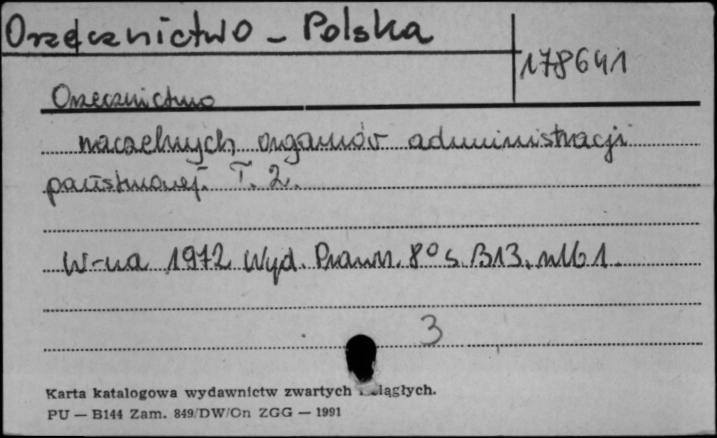 Orzecznictwo - Polska
178641
Orzecznictwo
naczelnych organów administracji
państwowej. T. 2.
W-wa 1972 Wyd. Prawn. 8° s. 813, nlb 1.
3
Karta katalogowa wydawnictw zwartych ciągłych.
PU — B144 Zam. 849/DW/On ZGG — 1991